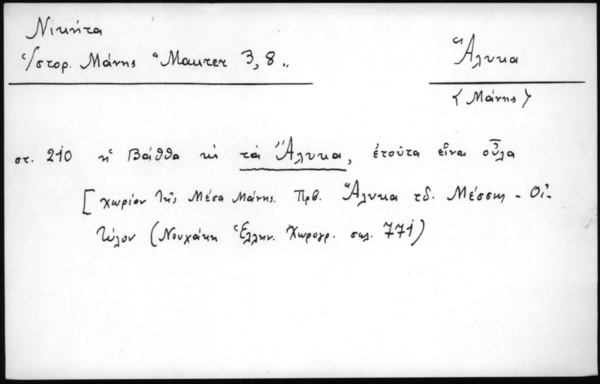 Νικήτα
Ἱστορ. Μάνης
3, 8..
Ἄλυκα
<Μάνης>
στ. 210 ἡ Βάθθα κι τὰ Ἄλυκα, ἐτοῦτα εἶναι οὗλα
[χωρίον τῆς Μέσα Μάνης. Πρβ. Ἄλυκα τδ. Μέσσης - Οἰ-
τύλον (Νουχάκη Ἑλλην. Χωρογρ. σελ. 771)